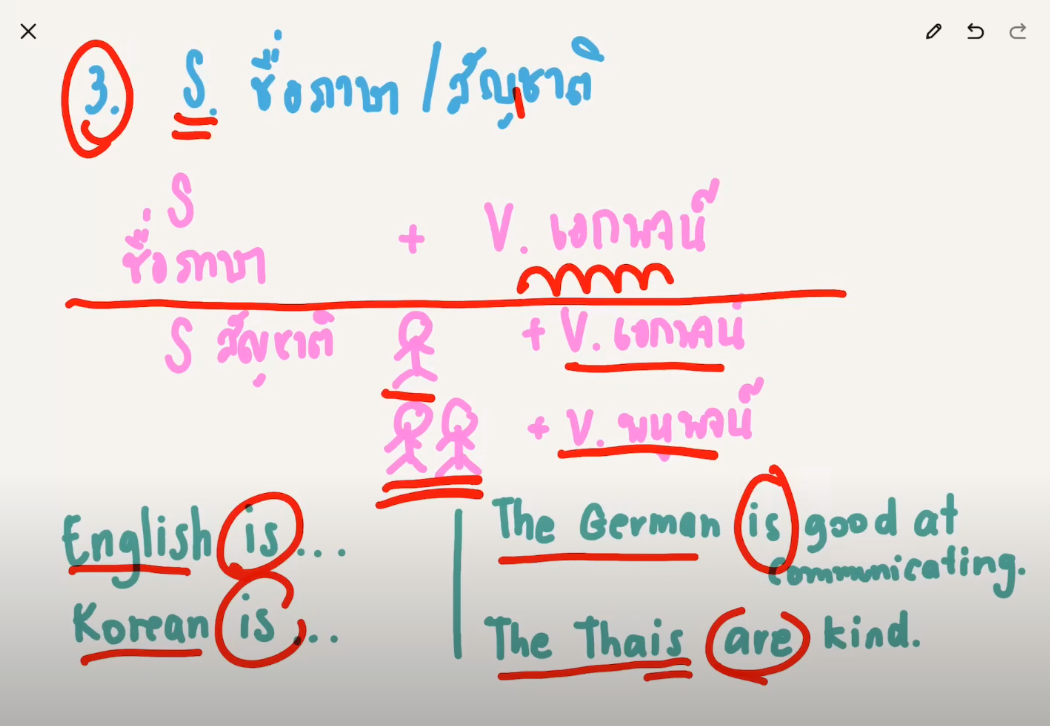 3. S. ชื่อภาษา / สัญชาติ
S
ชื่อภาษา + V. เอกพจน์
S สัญชาติ + V. เอกพจน์
+ V. พหูพจน์
English is ...
Korean is ...
The German is good at
communicating.
The Thais are kind.